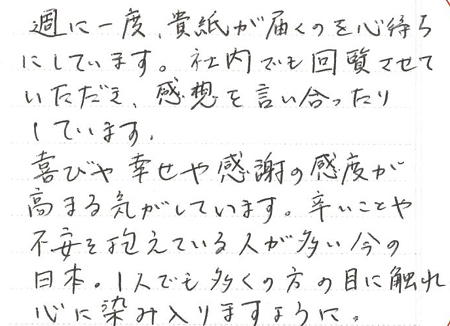 週に一度、貴紙が届くのを心待ち
にしています。社内でも回覧させて
いただき、感想を言い合ったり
しています。
喜びや幸せや感謝の感度が
高まる気がしています。辛いことや
不安を抱えている人が多い今の
日本。1人でも多くの方の目に触れ
心に染み入りますように。